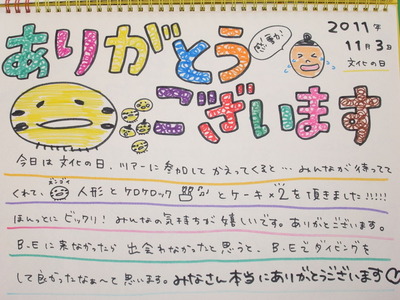 2011年
11月3日
文化の日
感動が
ありがとう
ございます
今日は文化の日、ツアーに参加してかえってくると…みんなが待ってて
くれて、人形とケロケロックとケーキ×2を頂きました!!!!!
ほんっとにビックリ！みんなの気持ちが嬉しいです。ありがとうございます。
B.Eに来なかったら出会わなかったと思うと、B.Eでダイビングを
して良かったなぁ〜と思います。みなさん本当にありがとうございます